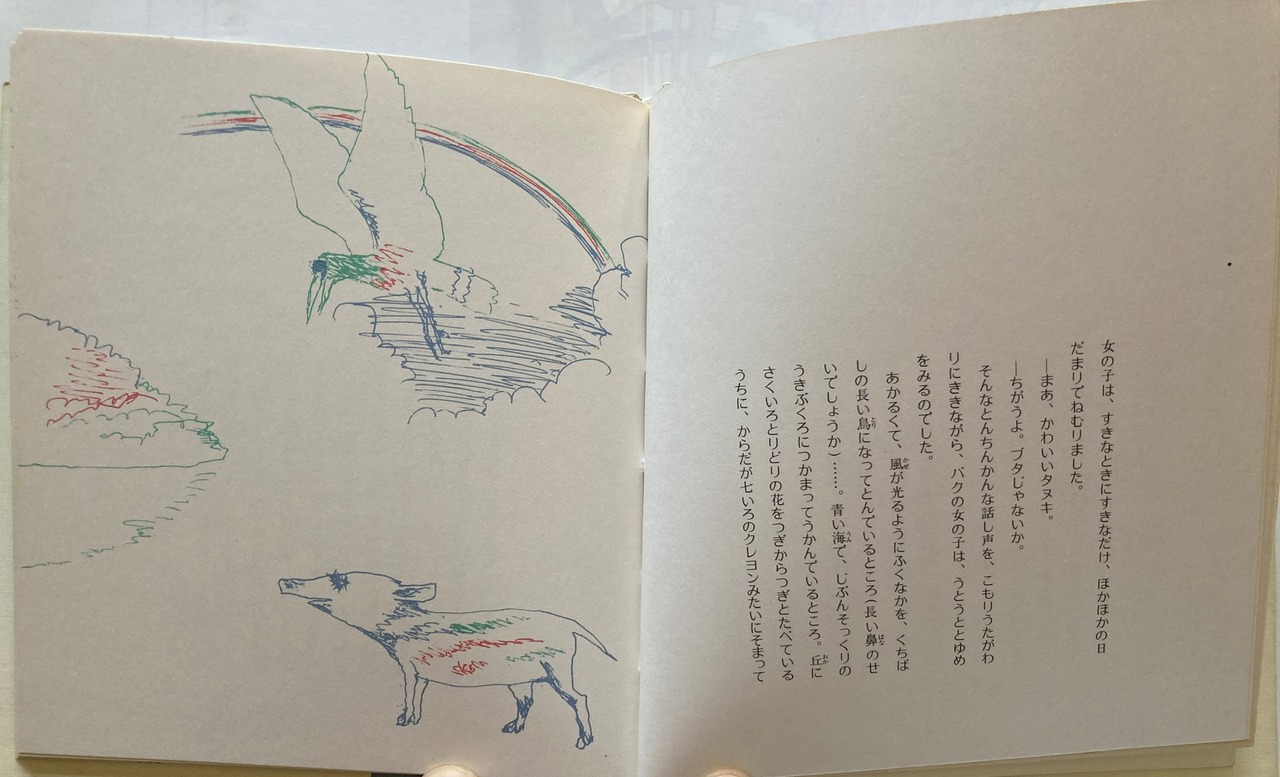 女の子は、すきなときにすきなだけ、ほかほかの日
だまりでねむりました。
―まあ、かわいいタヌキ。
―ちがうよ。ブタじゃないか。
そんなとんちんかんな話し声を、こもりうたがわ
りにききながら、バクの女の子は、うとうととゆめ
をみるのでした。
あかるくて、風が光るようにふくなかを、くちば
しの長い鳥になってとんでいるところ(長い鼻のせ
いでしょうか)……。青い海で、じぶんそっくりの
うきぶくろにつかまってうかんでいるところ。丘に
さくいろとりどりの花をつぎからつぎとたべている
うちに、からだが七いろのクレヨンみたいにそまって